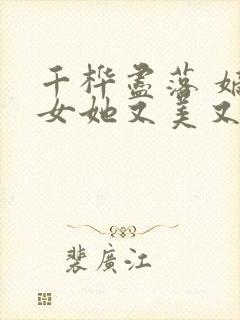 千桦尽落 嫡
女她又美又
裴廣江